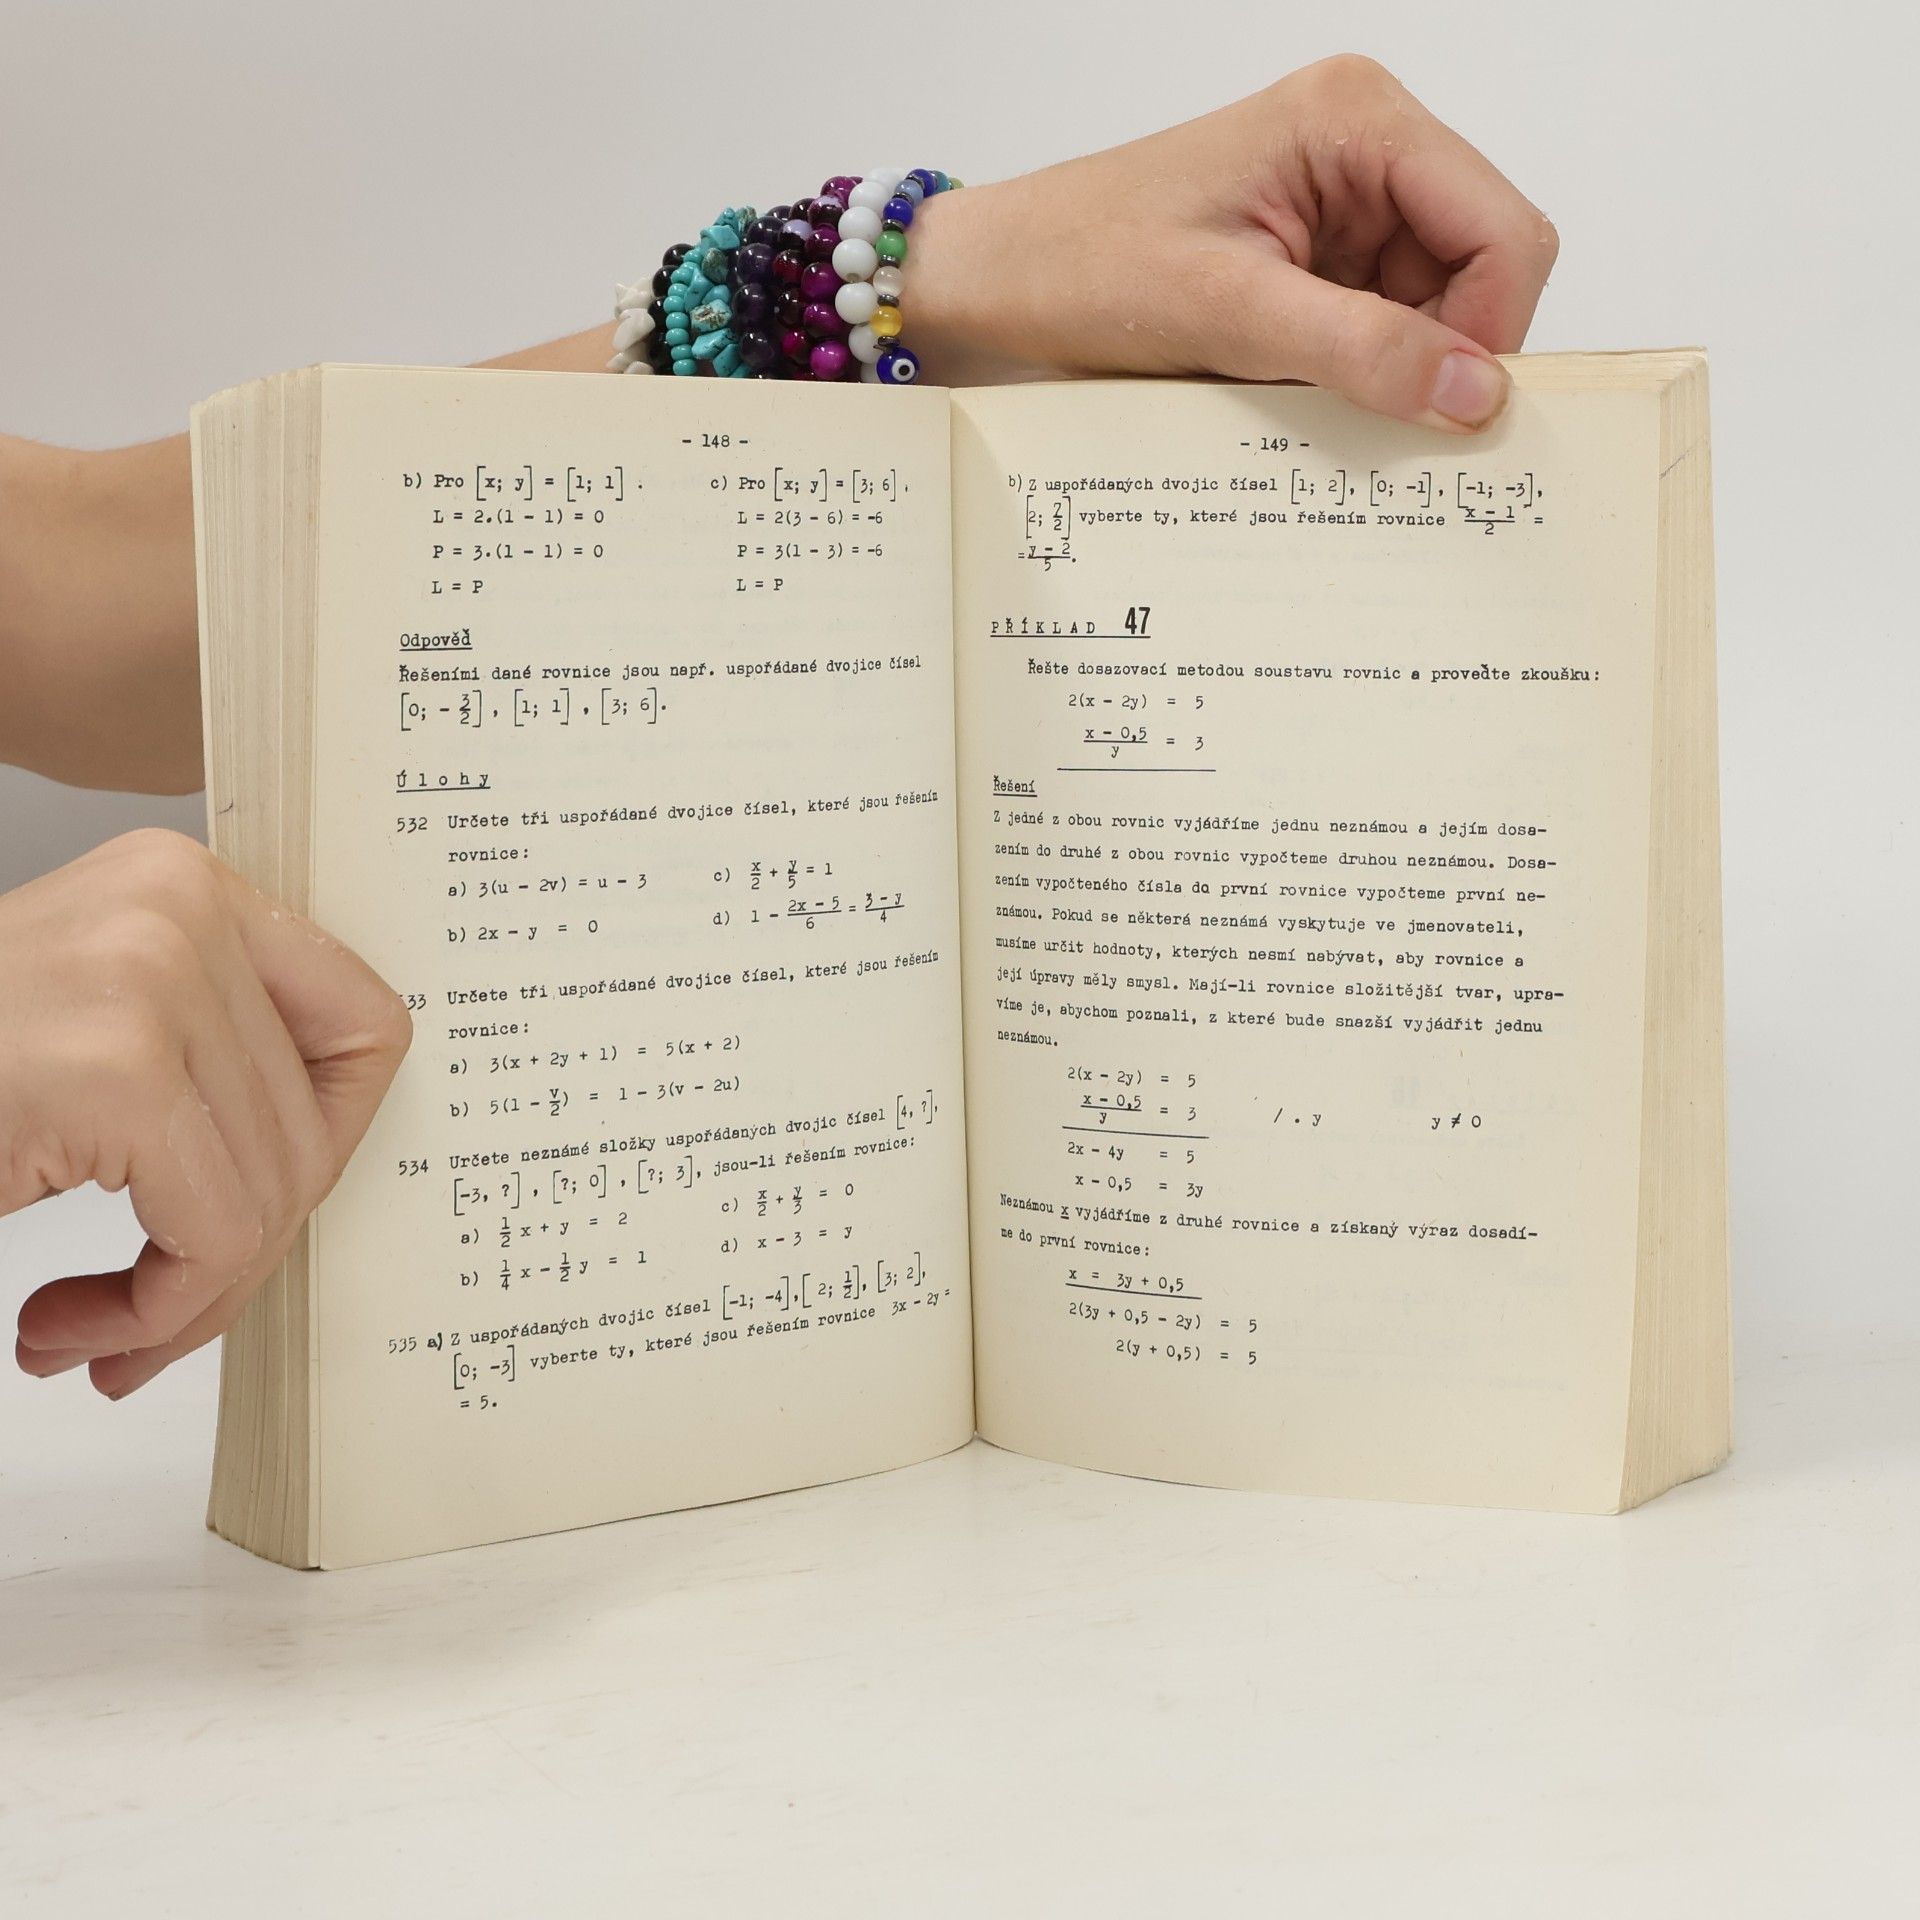 - 148 -
b) Pro [x; y] = [1; 1] . c) Pro [x; y] = [3; 6] .
L = 2.(1 - 1) = 0 L = 2(3 - 6) = -6
P = 3.(1 - 1) = 0 P = 3(1 - 3) = -6
L = P L = P
Odpověď
Řešeními dané rovnice jsou např. uspořádané dvojice čísel
[0; - 3/2] , [1; 1] , [3; 6].
Ú l o h y
532 Určete tři uspořádané dvojice čísel, které jsou řešením
rovnice:
a) 3(u - 2v) = u - 3 c) x/2 + y/5 = 1
b) 2x - y = 0 d) 1 - (2x - 5)/6 = (3 - y)/4
33 Určete tři uspořádané dvojice čísel, které jsou řešením
rovnice:
a) 3(x + 2y + 1) = 5(x + 2)
b) 5(1 - v/2) = 1 - 3(v - 2u)
534 Určete neznámé složky uspořádaných dvojic čísel [4, ?],
[-3, ?] , [?; 0] , [?; 3], jsou-li řešením rovnice:
a) 1/2 x + y = 2 c) x/2 + y/3 = 0
b) 1/4 x - 1/2 y = 1 d) x - 3 = y
535 a) Z uspořádaných dvojic čísel [-1; -4],[ 2; 1/2], [3; 2],
[0; -3] vyberte ty, které jsou řešením rovnice 3x - 2y =
= 5.
- 149 -
b) Z uspořádaných dvojic čísel [1; 2], [0; -1], [-1; -3],
[2; 7/2] vyberte ty, které jsou řešením rovnice (x - 1)/2 =
= (y - 2)/5.
PŘÍKLAD 47
Řešte dosazovací metodou soustavu rovnic a proveďte zkoušku:
2(x - 2y) = 5
(x - 0,5)/y = 3
Řešení
Z jedné z obou rovnic vyjádříme jednu neznámou a jejím dosa-
zením do druhé z obou rovnic vypočteme druhou neznámou. Dosa-
zením vypočteného čísla do první rovnice vypočteme první ne-
známou. Pokud se některá neznámá vyskytuje ve jmenovateli,
musíme určit hodnoty, kterých nesmí nabývat, aby rovnice a
její úpravy měly smysl. Mají-li rovnice složitější tvar, upra-
víme je, abychom poznali, z které bude snazší vyjádřit jednu
neznámou.
2(x - 2y) = 5
(x - 0,5)/y = 3 / . y y ≠ 0
2x - 4y = 5
x - 0,5 = 3y
Neznámou x vyjádříme z druhé rovnice a získaný výraz dosadí-
me do první rovnice:
x = 3y + 0,5
2(3y + 0,5 - 2y) = 5
2(y + 0,5) = 5